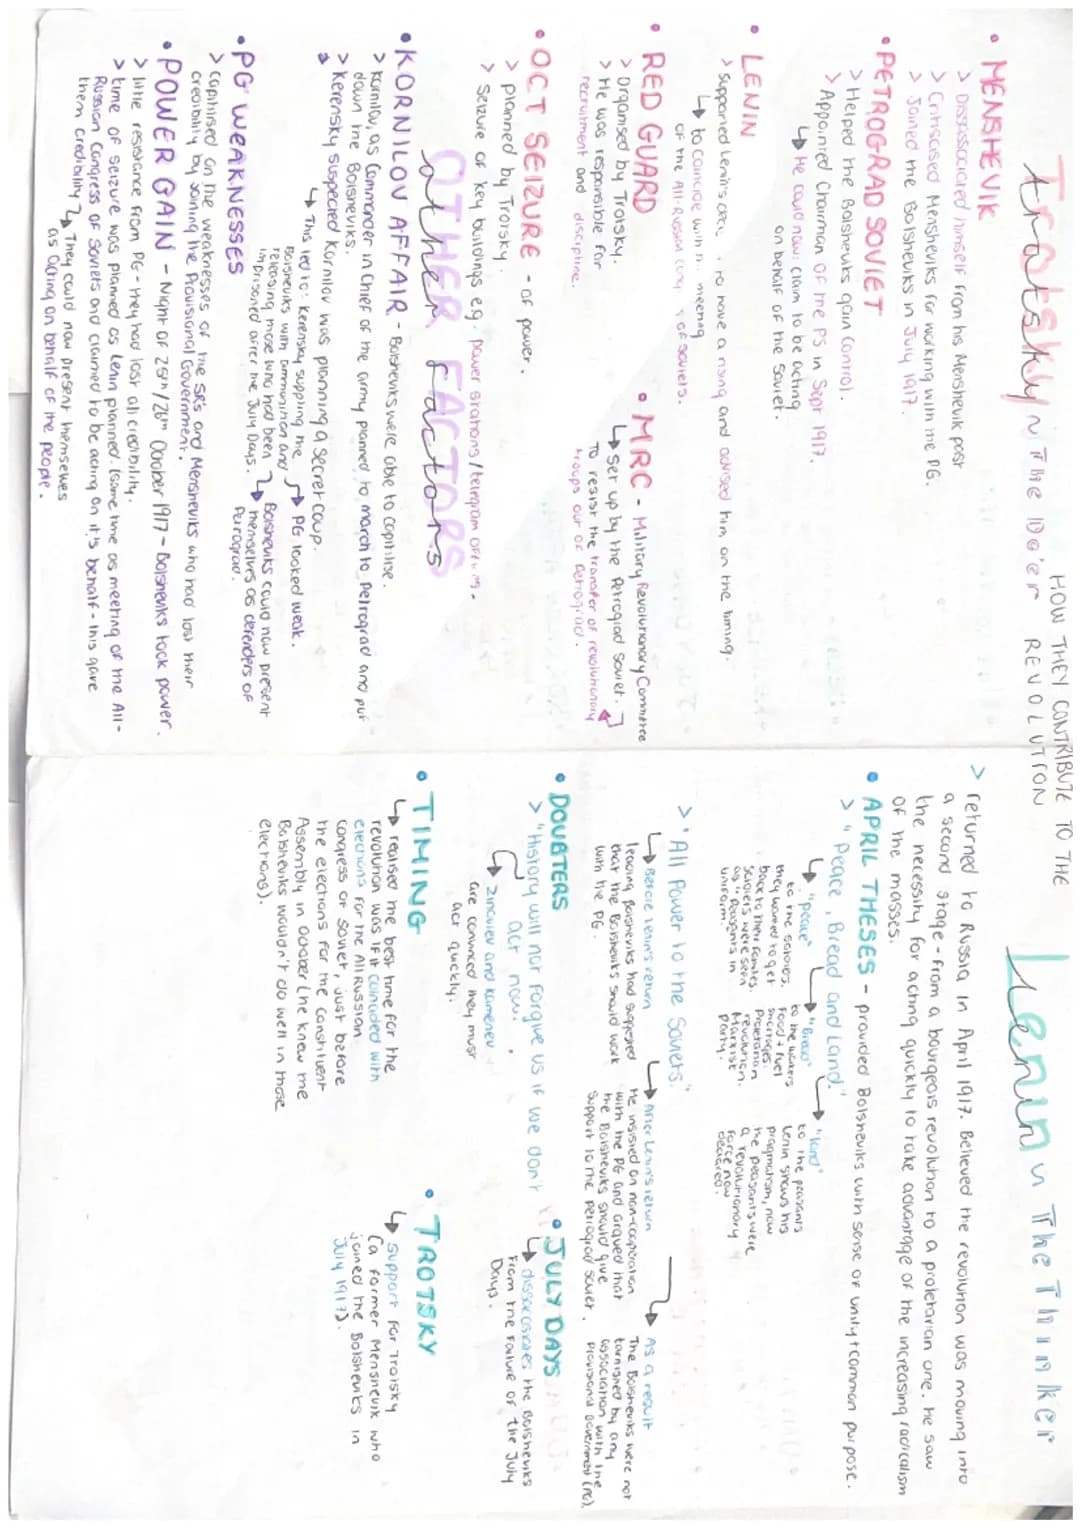 HOW THEY CONTRIBUTE TO THE
REVOLUTION
Trotsky ~ The Do'er
• MENSHEVIK
> Dissassociated himself from his Menshevik past
> Critiscised Mensheviks for working with the PG.
> Joined the Bolsheviks in July 1917.
• PETROGRAD SOVIET
> Helped the Bolsheviks gain control.
> Appointed Chairman of the PS in Sept 1917.
↳ He could now claim to be acting
on behalf of the Soviet.
• LENIN
> supported Lenin's to have a rising and advised him on the timing.
↳ to coincide with meeting
of the All-Russian of Soviets.
• RED GUARD
> Organised by Trotsky.
> He was responsible for
recruitment and discipline.
• MRC - Military Revolutionary Committee
↳ set up by the Petrograd Soviet.
To resist the transfer of revolutionary
troops out of Petrograd.
• OCT SEIZURE - of power.
> planned by Trotsky
> Seizure of key buildings e.g. power stations / telegram offices.
OTHER FACTORS
other factors
• KORNILOV AFFAIR - Bolsheviks were able to capitilise.
> Kornilov, as Commander in Chief of the army planned to march to Petrograd and put
down the Bolsheviks.
> Kerensky suspected Kornilov was planning a secret coup.
↳ This led to: Kerensky suppling the
Bolsheviks with ammunition and
releasing those who had been
imprisoned after the July Days.
→ PG looked weak.
↳ Bolsheviks could now present
themselves as defenders of
Petrograd.
• PG WEAKNESSES
> Capitilised on the weaknesses of the SRs and Mensheviks who had lost their
credibility by joining the Provisional Government.
• POWER GAIN - Night of 25th/26th October 1917 - Bolsheviks took power.
> little resistance from PG - they had lost all credibility.
> time of seizure was planned as Lenin planned. (same time as meeting of the All-
Russian Congress of Soviets and claimed to be acting on it's behalf - this gave
them credibility
↳ They could now present themselves
as acting on behalf of the people.
Lenin
Lenin ~ The Thinker
> returned to Russia in April 1917. Believed the revolution was moving into
a second stage - from a bourgeois revolution to a proletarian one. He saw
the necessity for acting quickly to take advantage of the increasing radicalism
of the masses.
• APRIL THESES - provided Bolsheviks with sense of unity + common purpose.
> "Peace, Bread and Land."
↳ "peace"
to the soldiers.
they wanted to get
back to their families.
Soldiers were seen
as "peasants in
uniform".
↳ "Bread"
to the workers
Food + fuel
shortages.
Proletarian
revolution,
Marxist
Party.
→ "land"
to the peasants
Lenin shows his
pragmatism, now
the peasants were
a revolutionary
force now
declared.
> "All Power to the Soviets."
↳ Before Lenin's return
leading Bolsheviks had suggested
that the Bolsheviks should work
with the PG.
↳ After Lenin's return
He insisted on non-cooperation
with the PG and argued that
the Bolsheviks should give
support to the Petrograd Soviet.
→ As a result
The Bolsheviks were not
tarnished by any
association with the
Provisional Government (PG).
• DOUBTERS
> "History will not forgive us if we don't
act now."
↳ Zinoviev and Kamenev
are convinced they must
act quickly.
• JULY DAYS
↳ dissociates the Bolsheviks
from the failure of the July
Days.
• TIMING
↳ realised the best time for the
revolution was if it coincided with
elections for the All Russian
Congress of Soviet, just before
the elections for the Constituent
Assembly in October (he knew the
Bolsheviks wouldn't do well in those
elections).
• TROTSKY
↳ Support for Trotsky
(a former Menshevik who
joined the Bolsheviks in
July 1917).